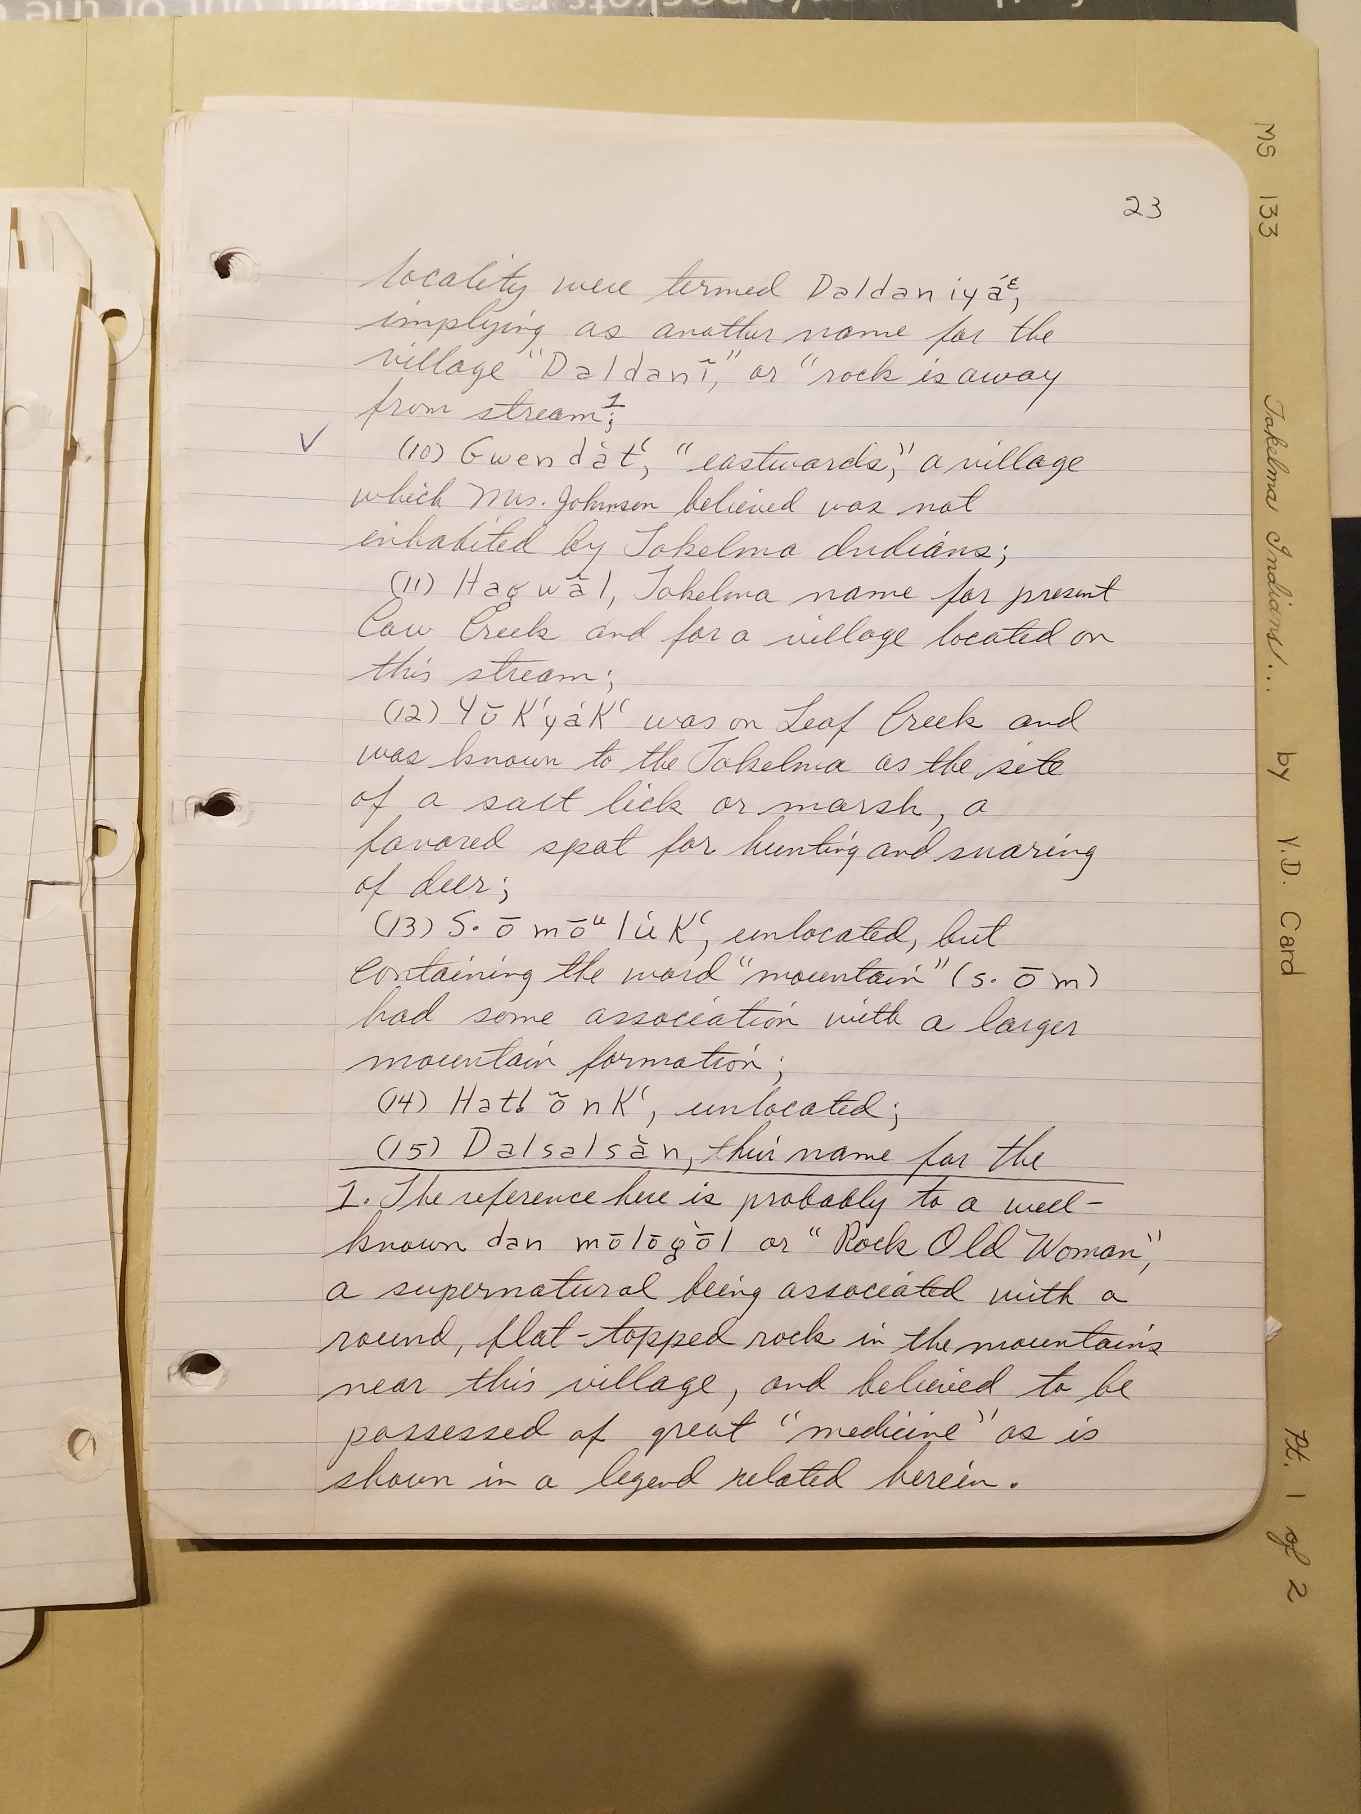 23
locality were termed Daldaniyáᵋ,
implying as another name for the
village "Daldanĩ," or "rock is away
from stream¹;
(10) Gwendàtʻ, "eastwards," a village
which Mrs. Johnson believed was not
inhabited by Takelma Indians;
(11) Hagwãl, Takelma name for present
Cow Creek and for a village located on
this stream;
(12) YōKʻyáKʻ was on Leaf Creek and
was known to the Takelma as the site
of a salt lick or marsh, a
favored spot for hunting and snaring
of deer;
(13) S·ōmōᵘlúKʻ, unlocated, but
containing the word "mountain" (s·ōm)
had some association with a larger
mountain formation;
(14) Hat!õnKʻ, unlocated;
(15) Dalsalsàn, their name for the
1. The reference here is probably to a well-
known dan mōlōgòl or "Rock Old Woman",
a supernatural being associated with a
round, flat-topped rock in the mountains
near this village, and believed to be
possessed of great "medicine" as is
shown in a legend related herein.
MS 133 Takelma Indians... by Y.D. Card Pt. 1 of 2